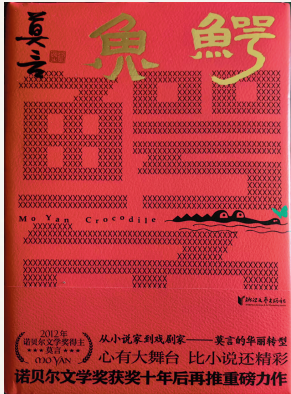 莫言
鱷魚
Mo Yan Crocodile
浙江文艺出版社
2012年
诺贝尔文学奖得主
莫言
MO YAN
从小说家到戏剧家——莫言的华丽转型
心有大舞台 比小说还精彩
诺贝尔文学奖获奖十年后再推重磅力作